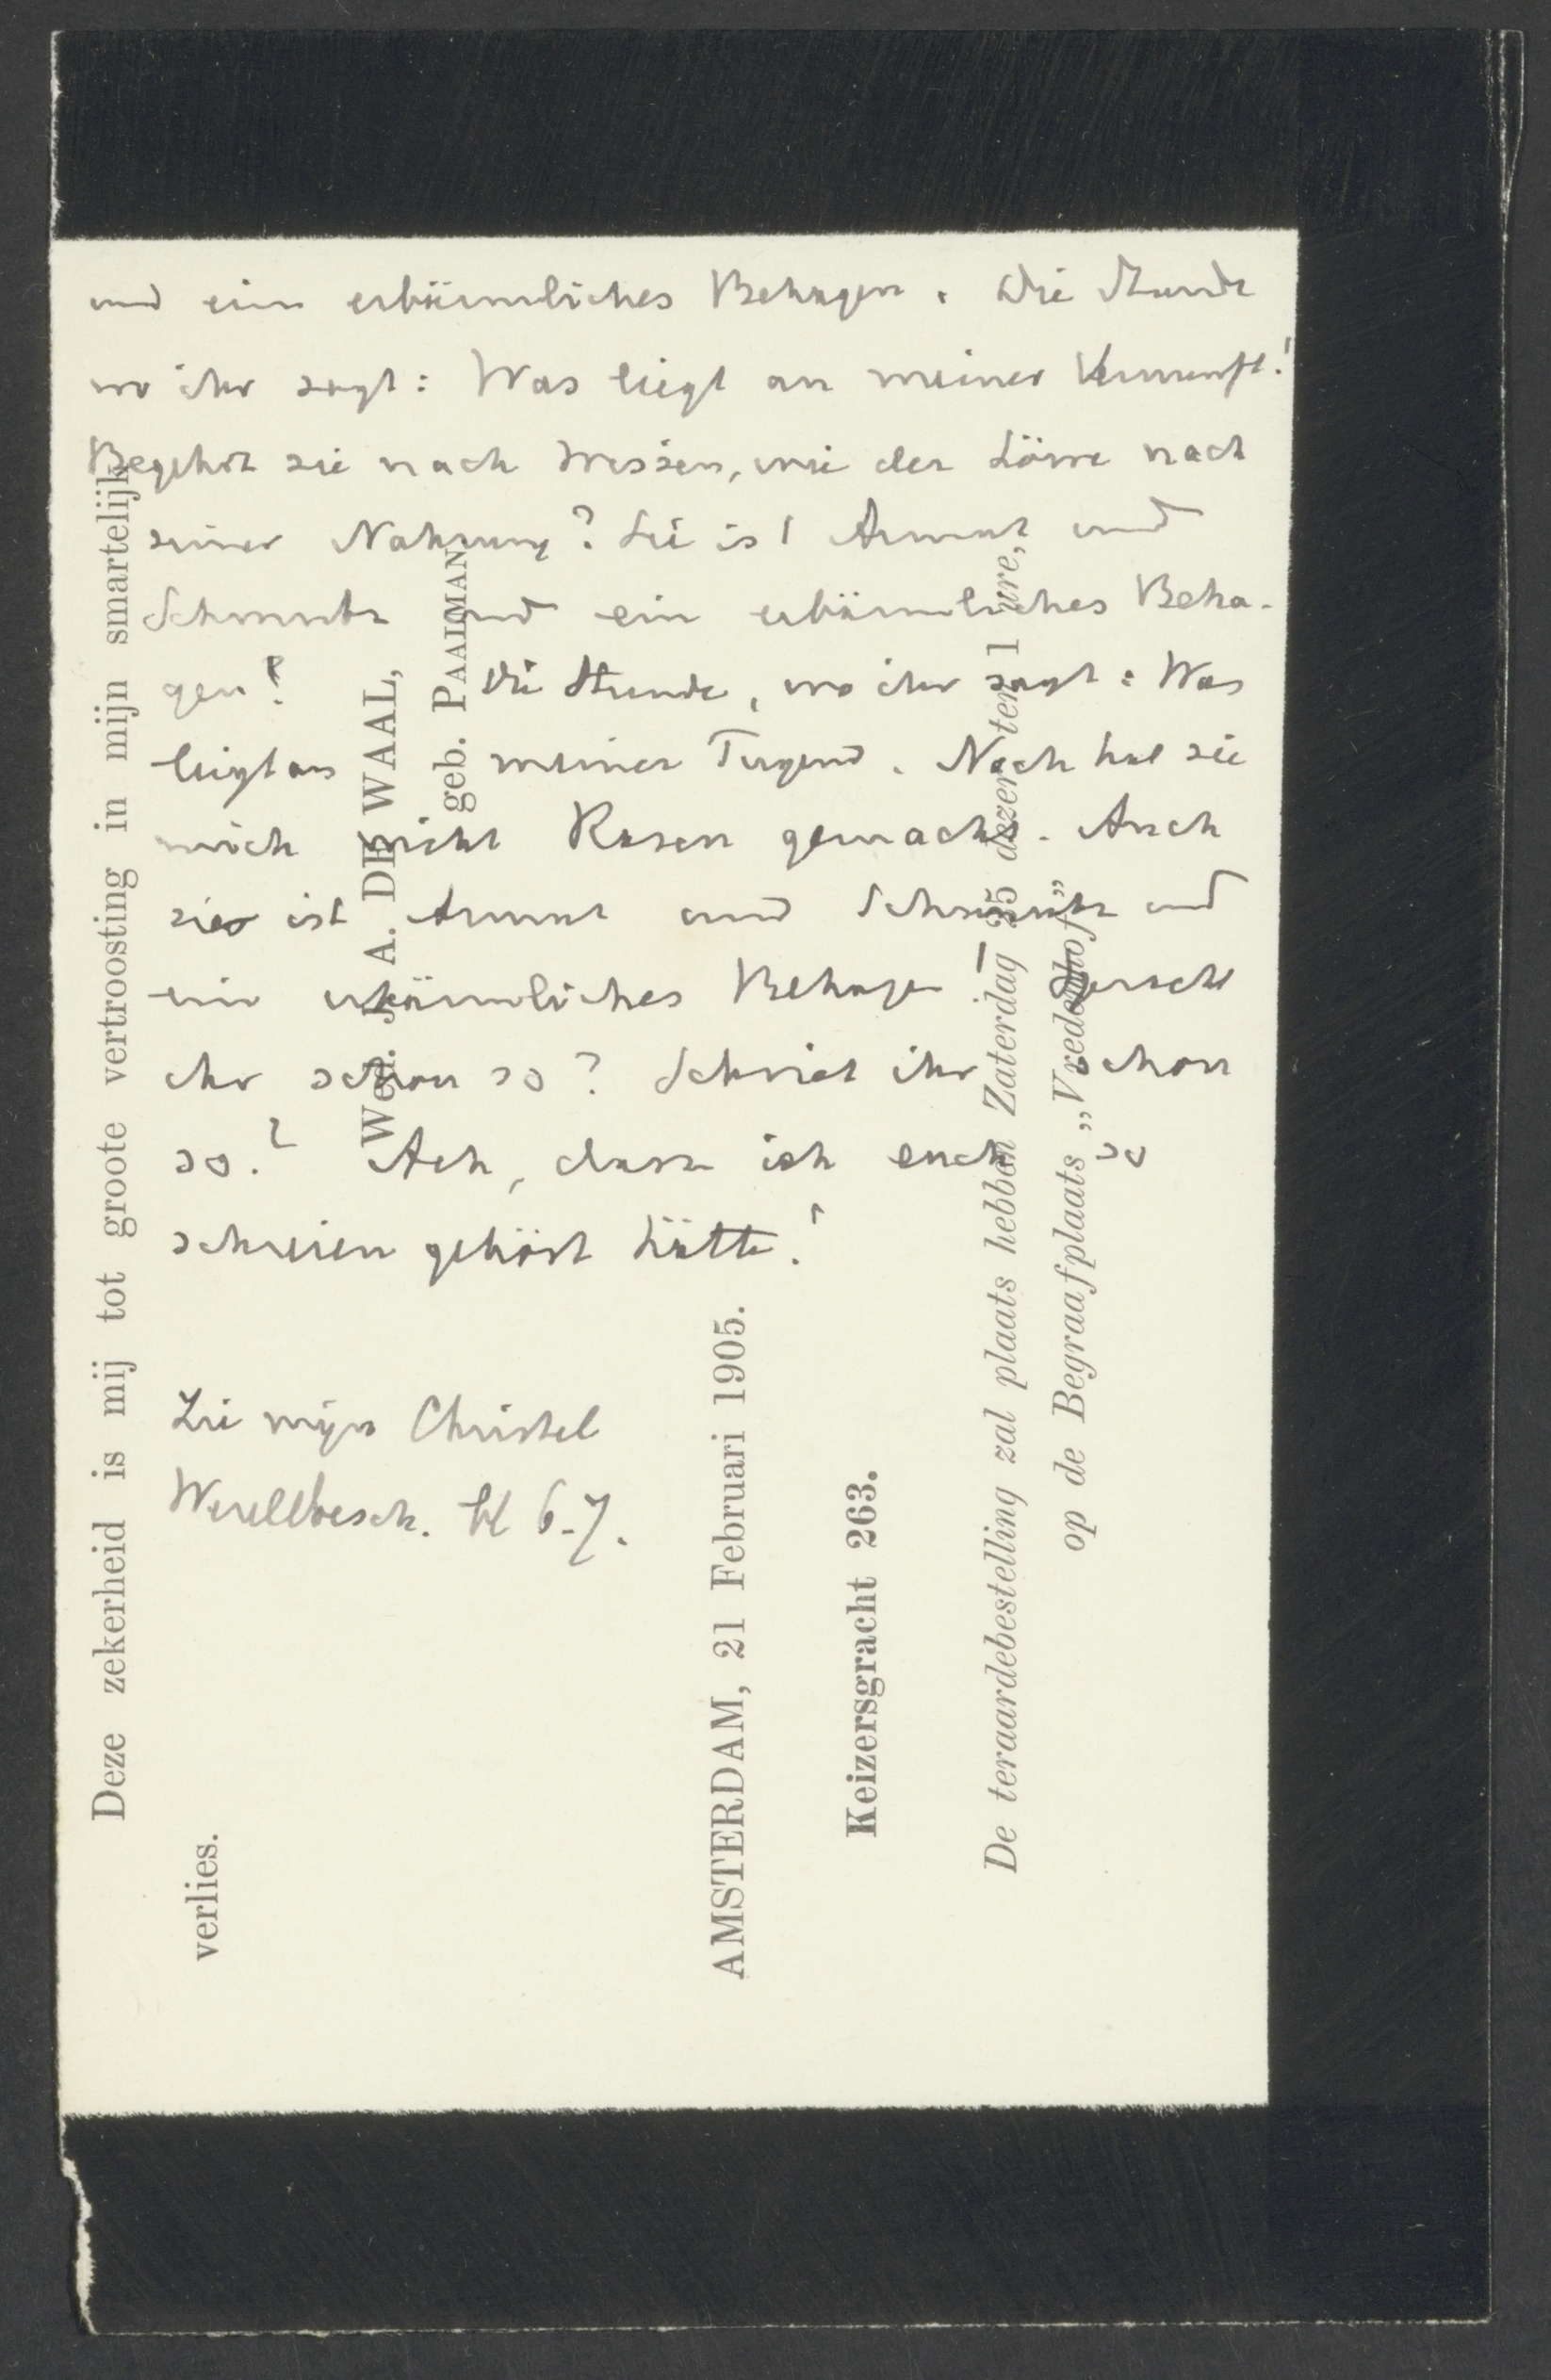 und ein erbärmliches Behagen. Die Stunde
wo ihr sagt: Was liegt an meiner Vernunft!
Begehrt sie nach Wissen, wie der Löwe nach
seiner Nahrung? Sie ist Armut und
Schmutz und ein erbärmliches Beha-
gen! Die Stunde, wo ihr sagt: Was
liegt an meiner Tugend. Noch hat sie
mich nicht Rasen gemacht. Auch
sie ist Armut und Schmutz und
ein erbärmliches Behagen! Spracht
ihr schon so? Schriet ihr schon
so? Ach, dass ich euch so
schreien gehört hätte!
Zie mijn Christel
Wereldbesch. bl 6-7.
Deze zekerheid is mij tot groote vertroosting in mijn smartelijk
verlies.
Wed. J. A. DE WAAL,
geb. PAALMAN.
AMSTERDAM, 21 Februari 1905.
Keizersgracht 263.
De teraardebestelling zal plaats hebben Zaterdag 25 dezer ten 1 ure,
op de Begraafplaats „Vredenhof”